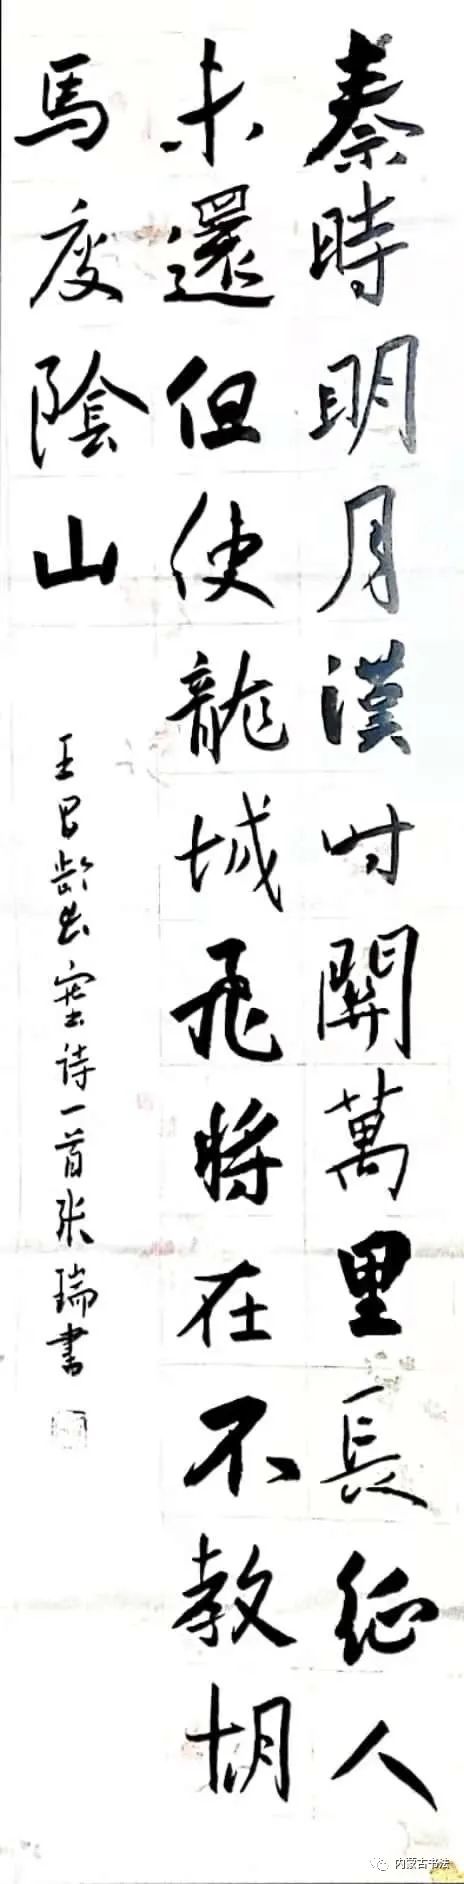 秦時明月漢时關萬里長征人
未還但使龍城飛将在不教胡
馬度陰山
王昌龄出塞诗一首张瑞書
内蒙古书法